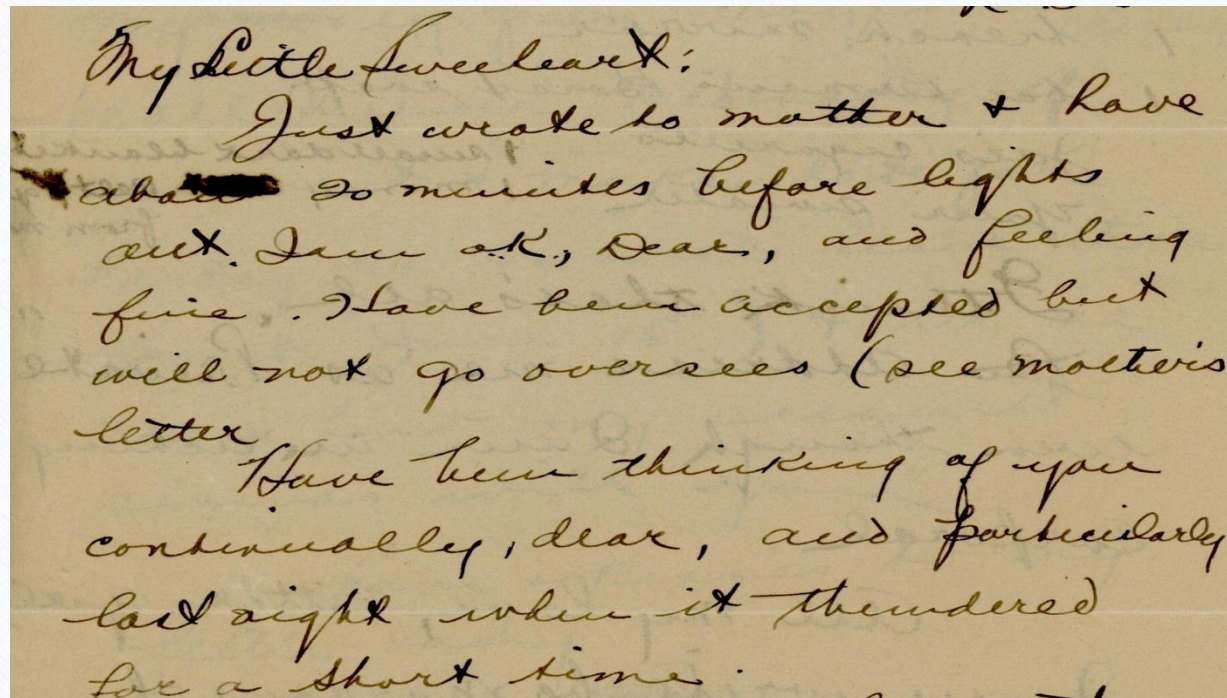 My Little Sweetheart:
Just wrote to mother & have
about 20 minutes before lights
out. I am o.k., Dear, and feeling
fine. Have been accepted but
will not go oversees (see mother's
letter
Have been thinking of you
continually, dear, and particularly
last night when it thundered
for a short time.